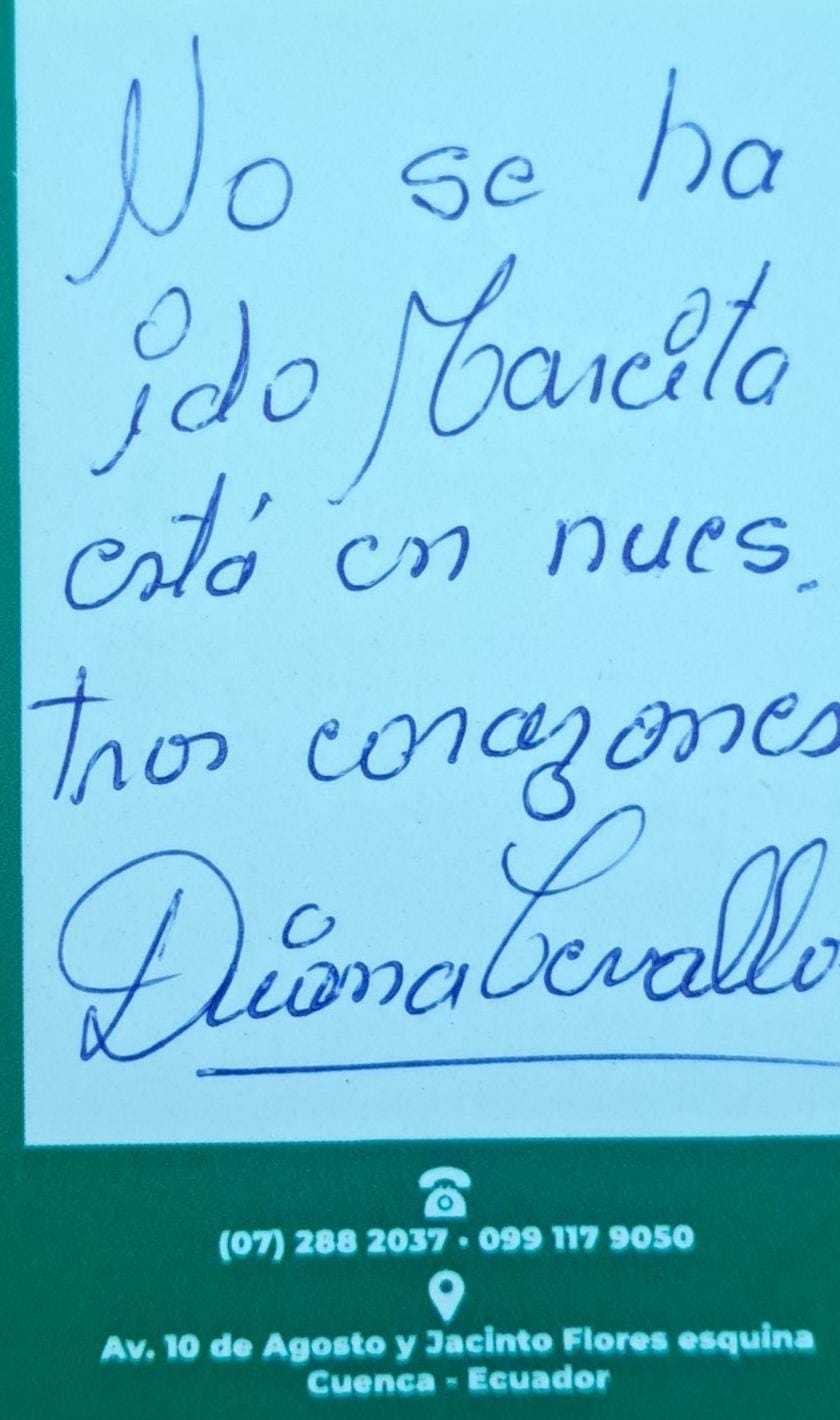 No se ha
ido Marcita
está en nues.
tros corazones
Diana Cevallo
(07) 288 2037 • 099 117 9050
Av. 10 de Agosto y Jacinto Flores esquina
Cuenca - Ecuador